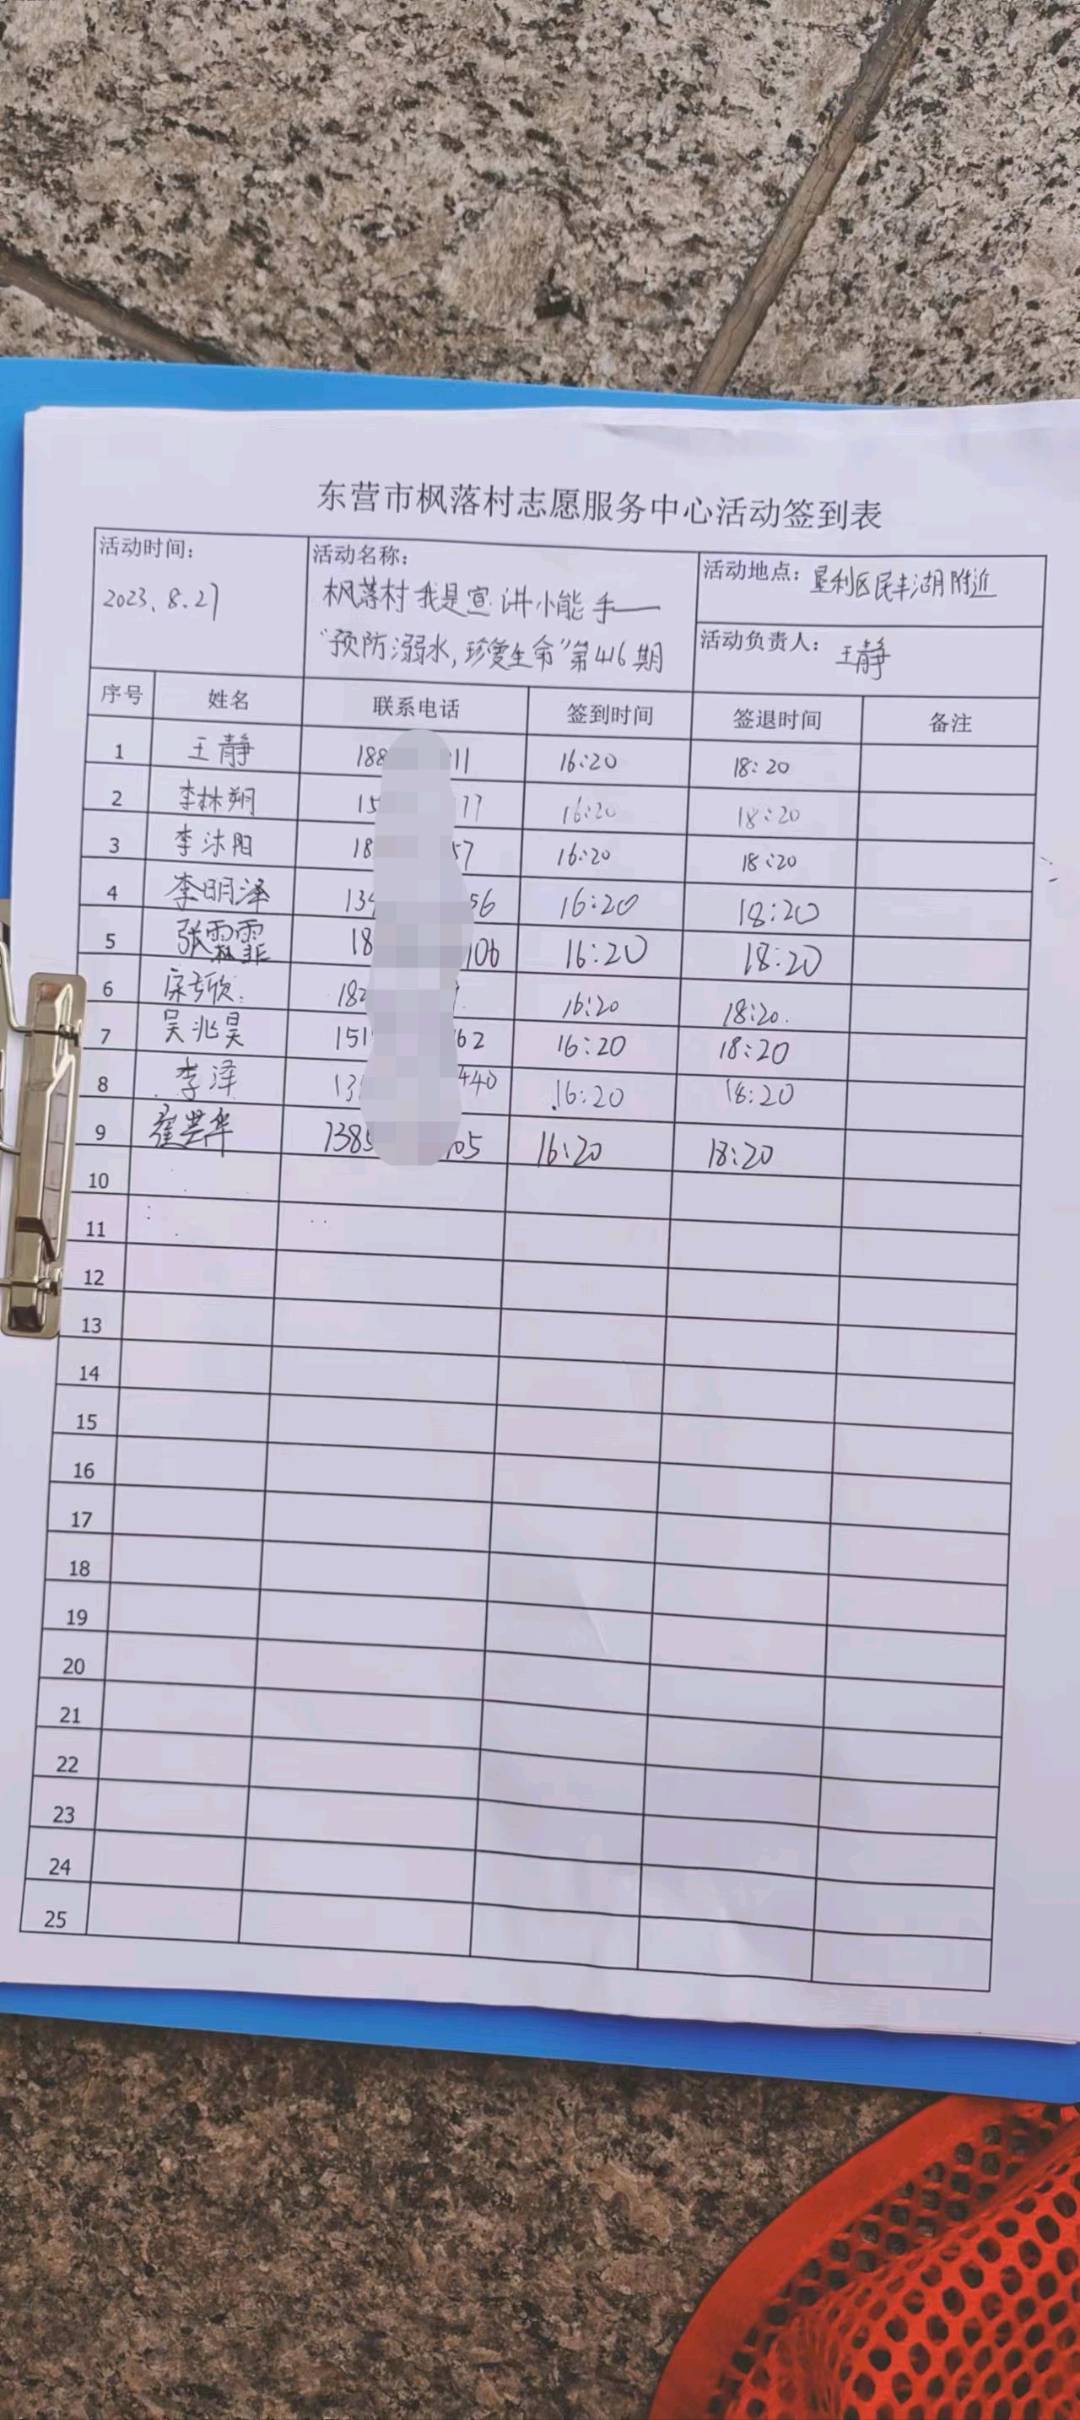 东营市枫落村志愿服务中心活动签到表
活动时间：
2023.8.27
活动名称：
枫落村我是宣讲小能手——
“预防溺水，珍爱生命”第416期
活动地点：垦利区民丰湖附近
活动负责人：王静
序号 姓名 联系电话 签到时间 签退时间 备注
1 王静 188 11 16:20 18:20
2 李林朔 15 77 16:20 18:20
3 李沐阳 18 57 16:20 18:20
4 李明泽 134 56 16:20 18:20
5 张霖霏 18 106 16:20 18:20
6 182 16:20 18:20
7 吴兆昊 151 62 16:20 18:20
8 李泽 13 440 16:20 18:20
9 崔兴华 1385 05 16:20 18:20
10
11
12
13
14
15
16
17
18
19
20
21
22
23
24
25